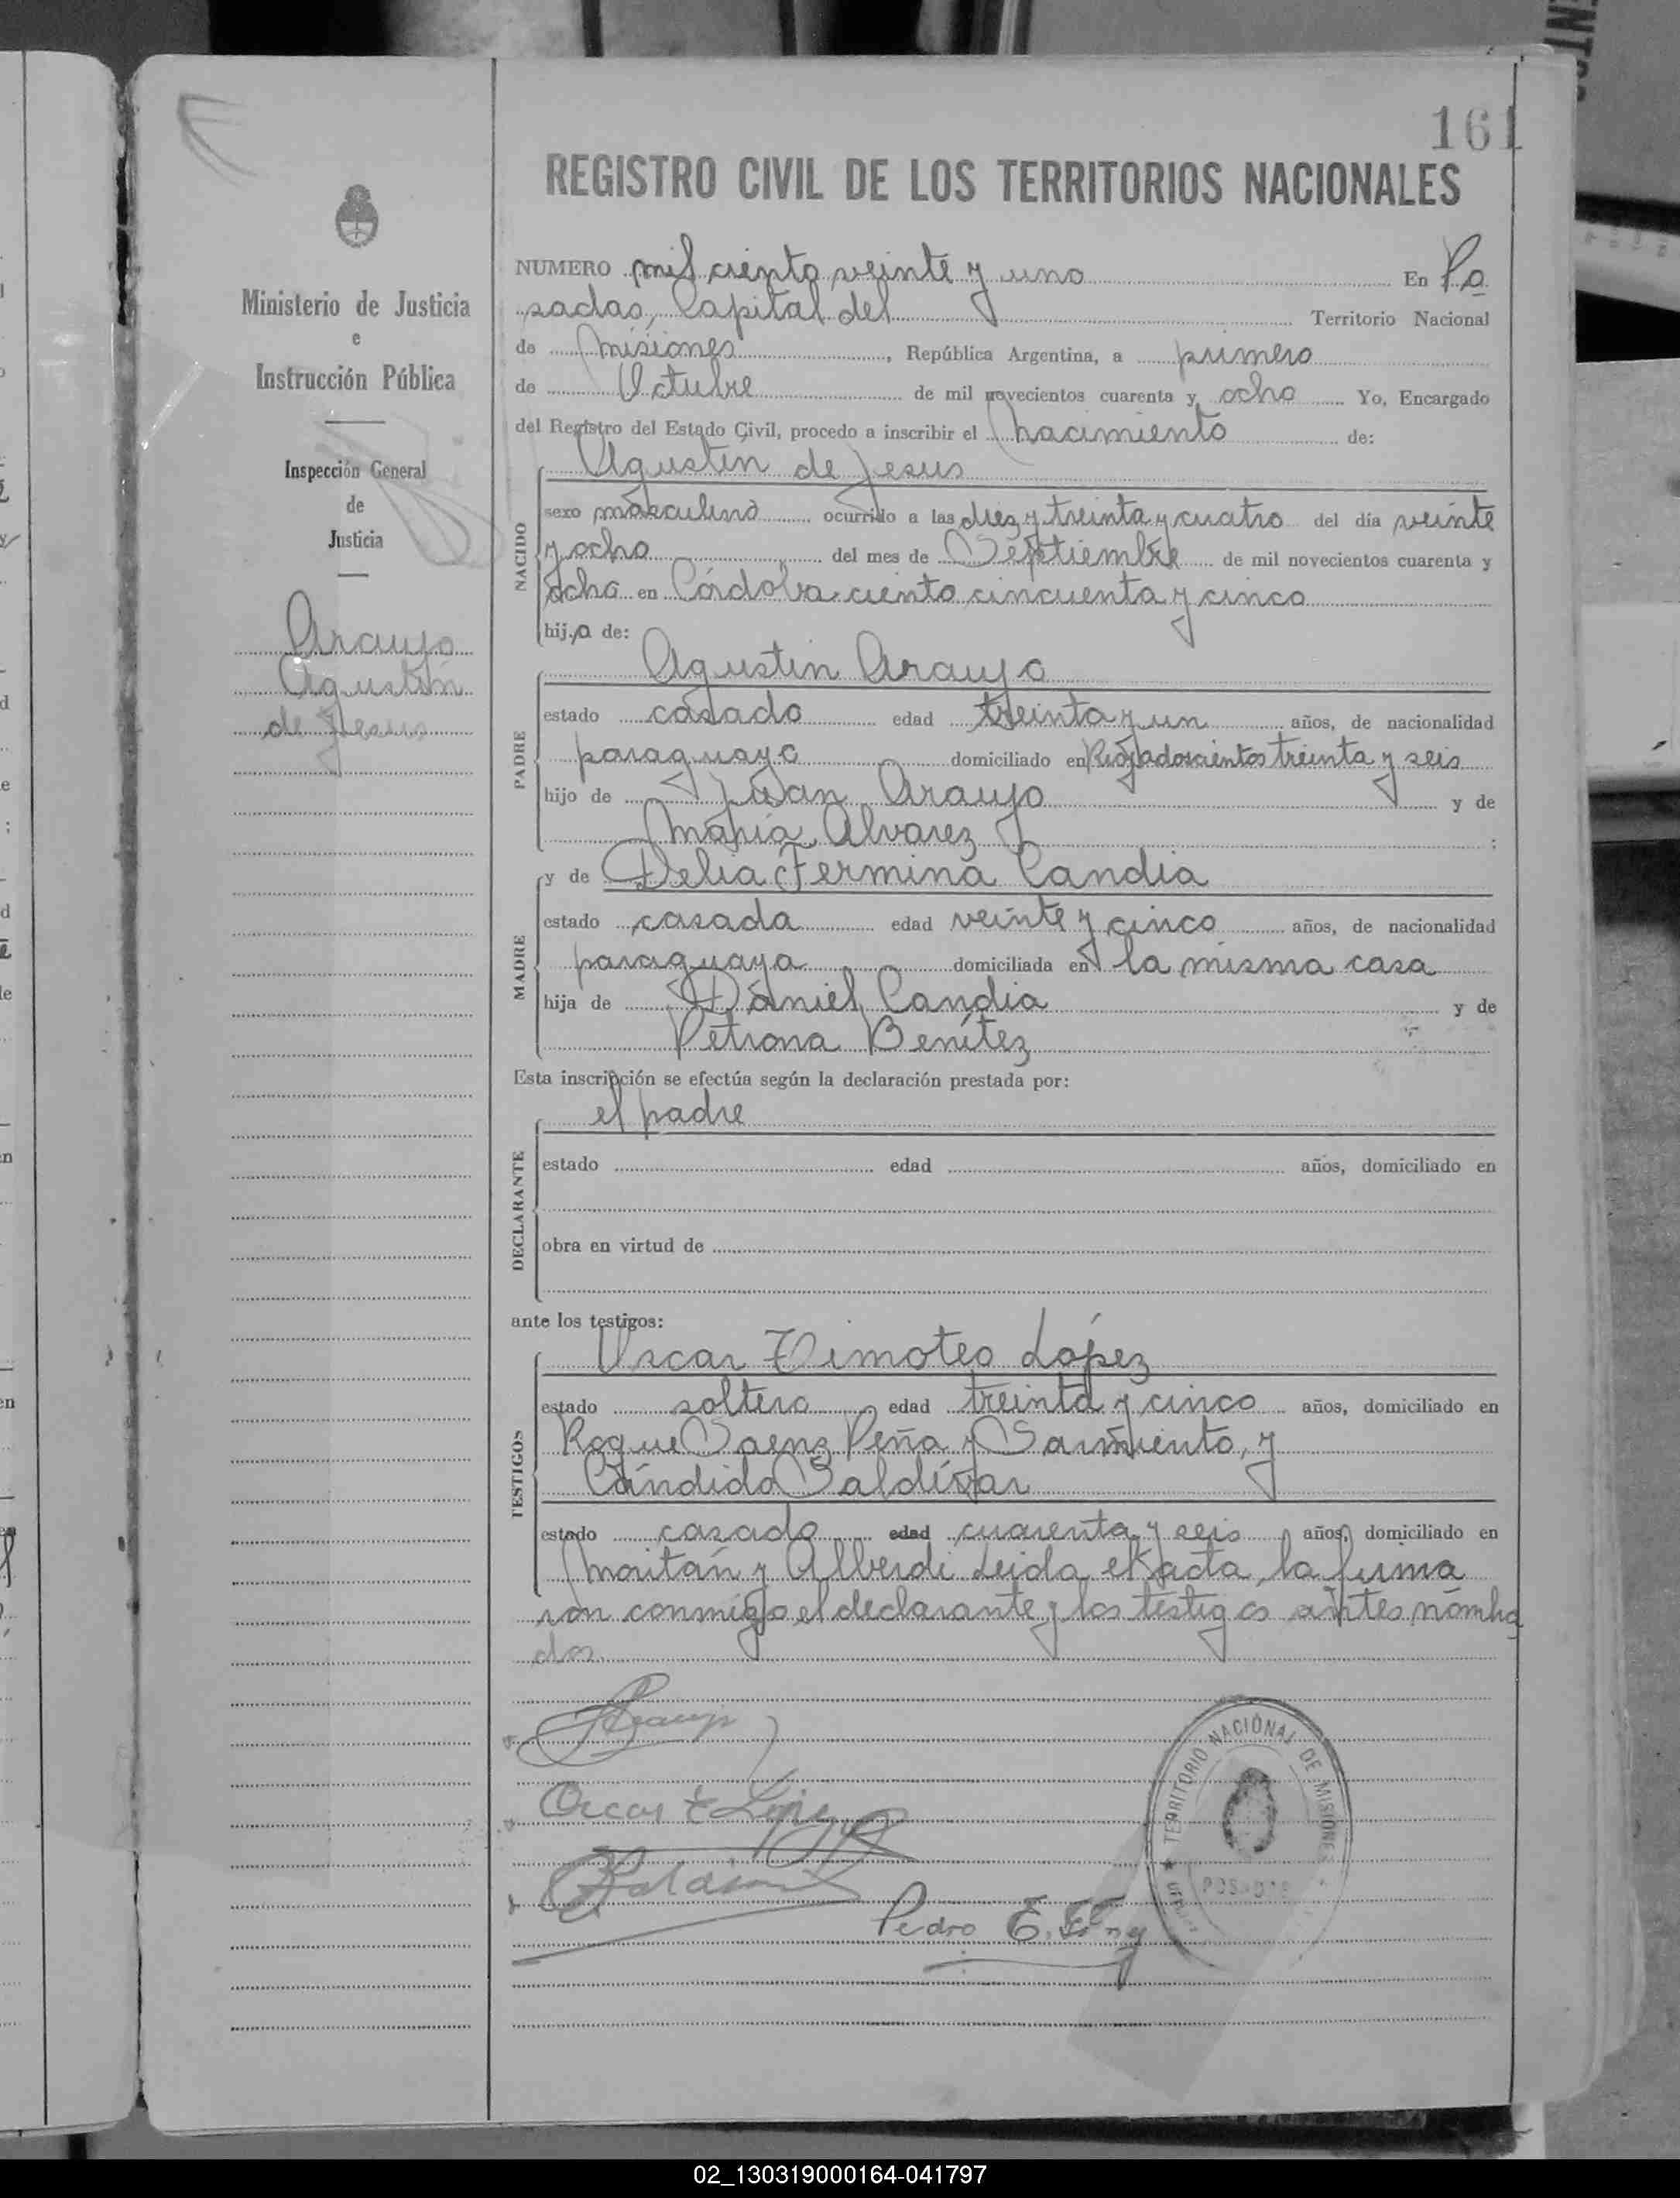 161
REGISTRO CIVIL DE LOS TERRITORIOS NACIONALES
Ministerio de Justicia
e
Instrucción Pública
Inspección General
de
Justicia
Araujo
Agustín
de Jesus
NUMERO mil ciento veinte y uno En Po
sadas, Capital del Territorio Nacional
de Misiones, República Argentina, a primero
de Octubre de mil novecientos cuarenta y ocho Yo, Encargado
del Registro del Estado Civil, procedo a inscribir el nacimiento de:
Agustin de Jesus
NACIDO
sexo masculino ocurrido a las diez y treinta y cuatro del día veinte
y ocho del mes de Septiembre de mil novecientos cuarenta y
ocho en Córdoba ciento cincuenta y cinco
hijo de:
Agustin Araujo
PADRE
estado casado edad treinta y un años, de nacionalidad
paraguayo domiciliado en Rioja doscientos treinta y seis
hijo de Juan Araujo y de
María Alvarez ;
y de Delia Fermina Candia
MADRE
estado casada edad veinte y cinco años, de nacionalidad
paraguaya domiciliada en la misma casa
hija de Daniel Candia y de
Petrona Benítez
Esta inscripción se efectúa según la declaración prestada por:
el padre
DECLARANTE
estado edad años, domiciliado en
obra en virtud de
ante los testigos:
Oscar Timoteo López
TESTIGOS
estado soltero edad treinta y cinco años, domiciliado en
Roque Saenz Peña y Sarmiento, y
Cándido Baldívar
estado casado edad cuarenta y seis años, domiciliado en
Moritán y Alberdi Leida el acta, la firma
ron conmigo el declarante y los testigos antes nombra
dos
Araujo
Oscar T López
Pedro E.
TERRITORIO NACIONAL DE MISIONES
POSADAS
02_130319000164-041797